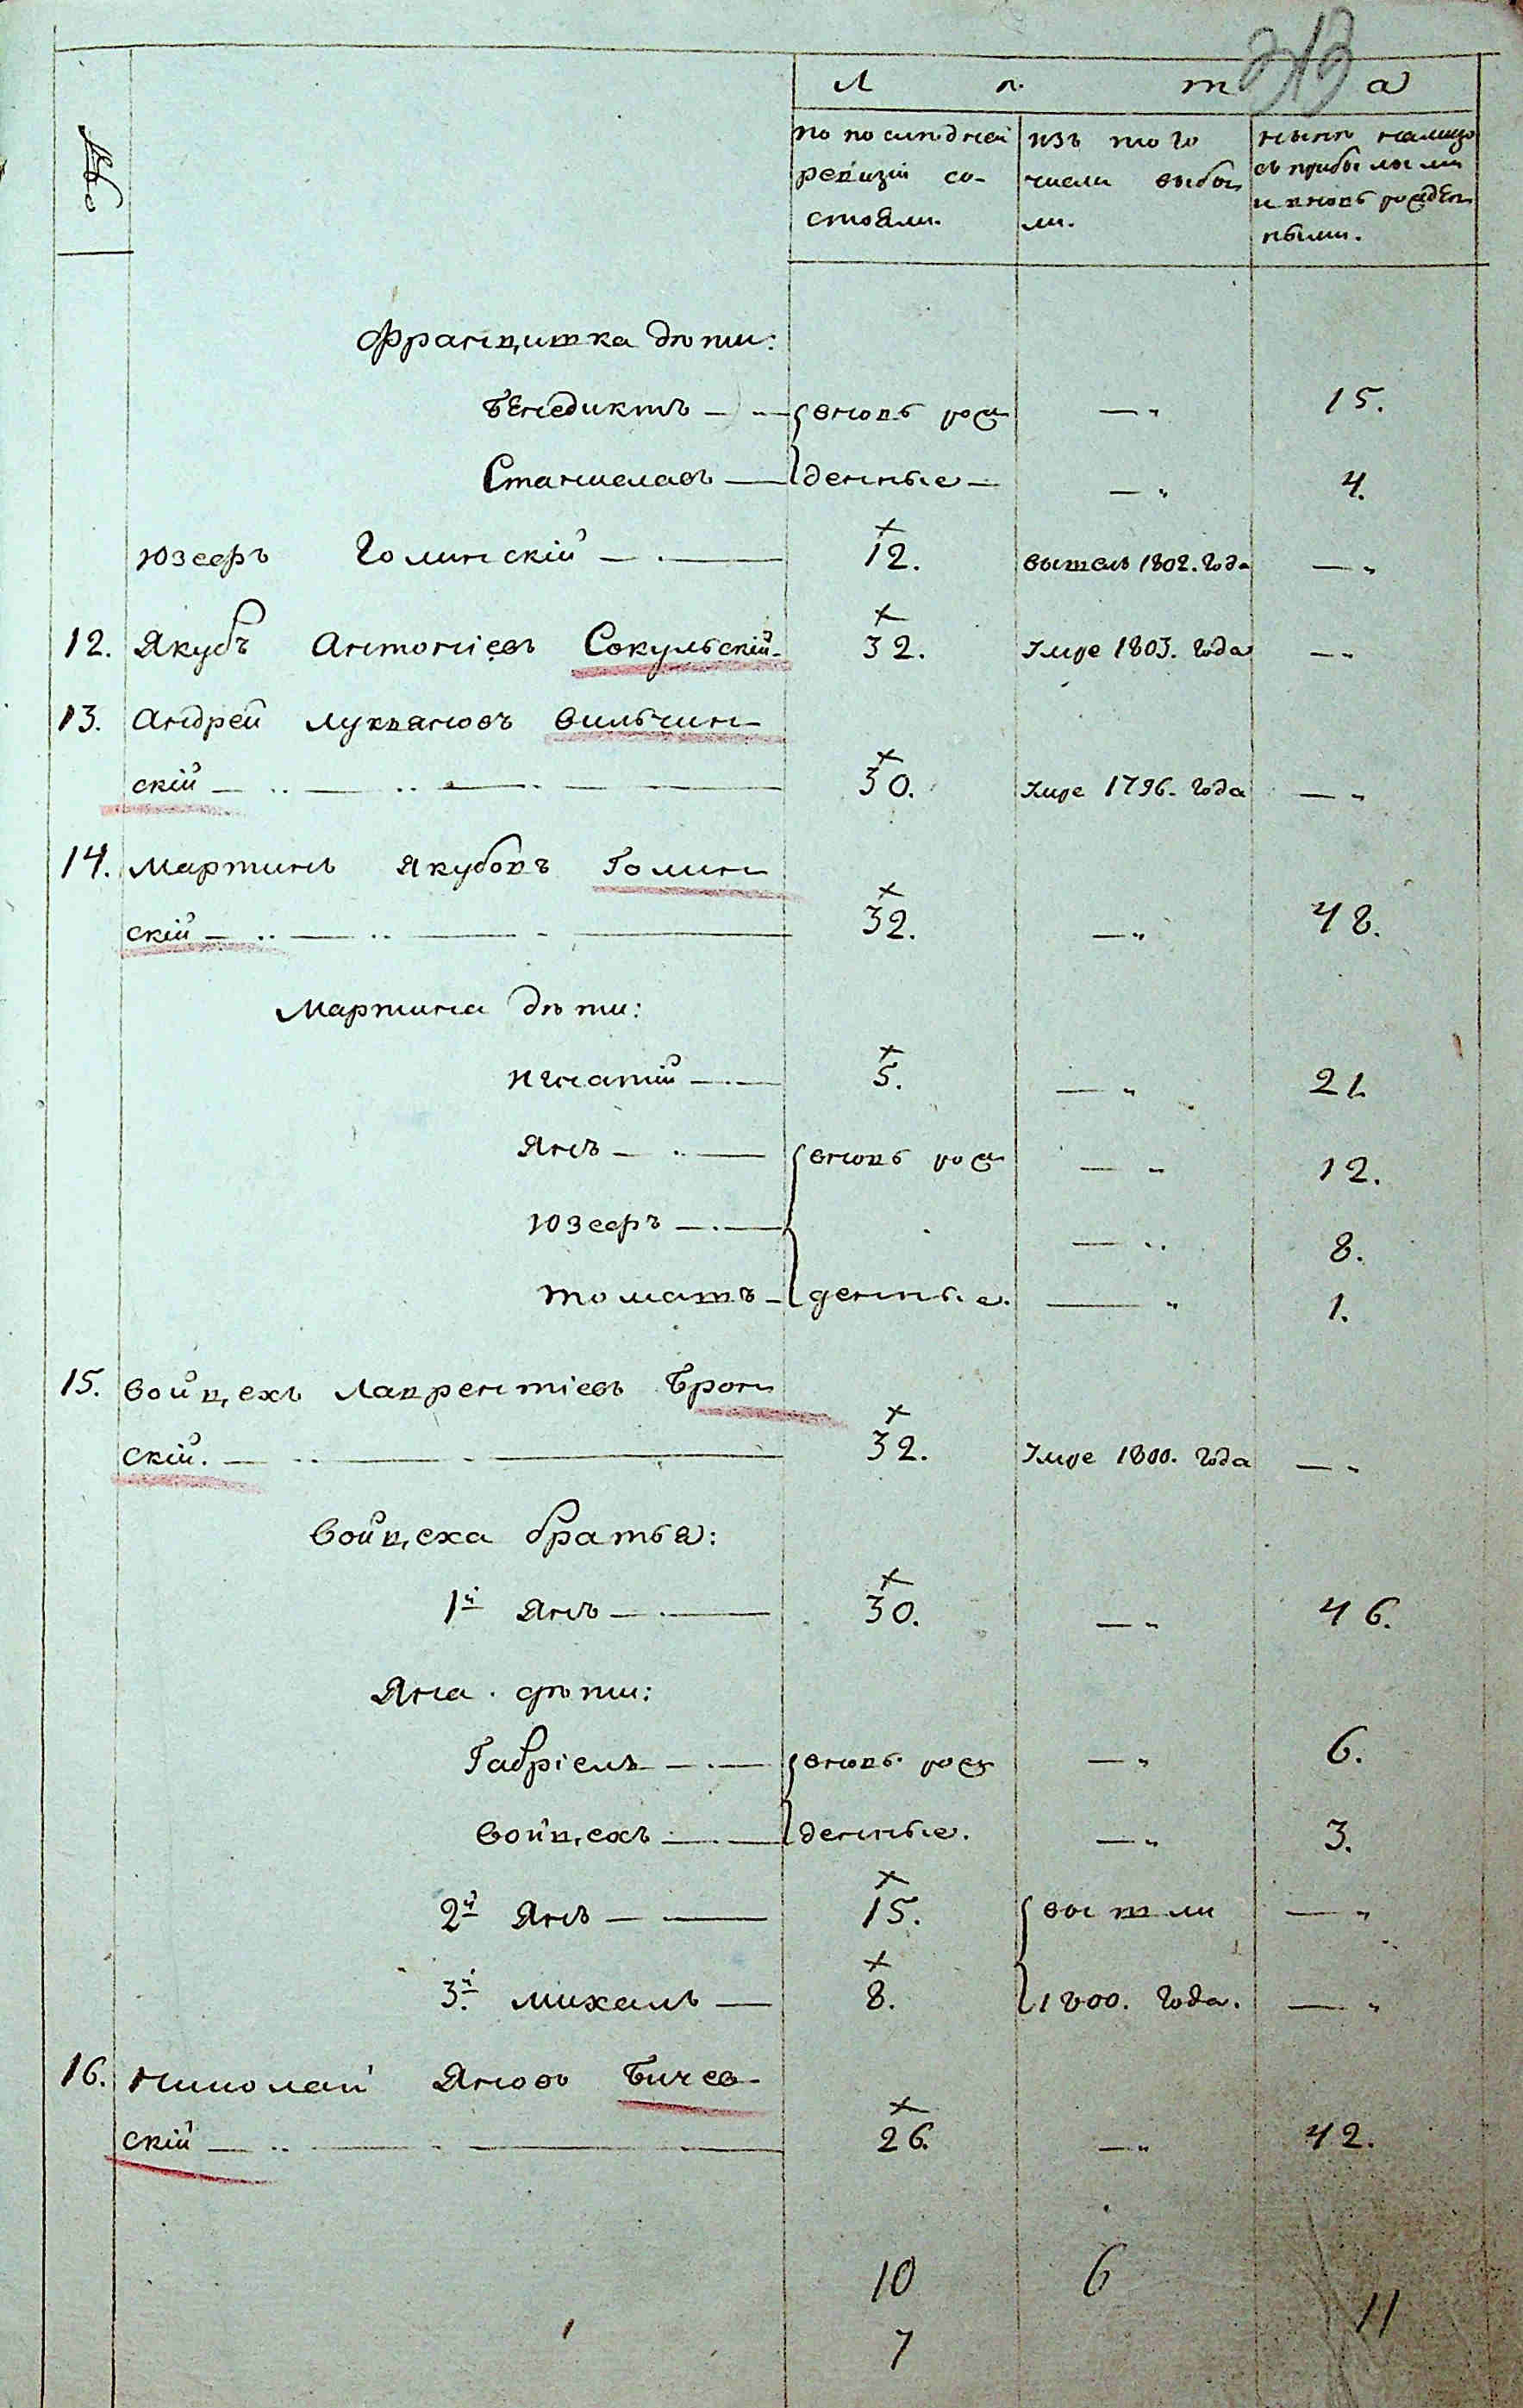 313
№ Лѣта
по послѣдней ревизіи состояли. | изъ того числа выбыли. | нынѣ налицо съ прибылыми и вновь рожденными.
Францишка дѣти:
Бенедиктъ — вновь рож — „ 15.
Станиславъ — денные — — „ 4.
Юзефъ Голинскій — 12. вышелъ 1802. года — „
12. Якубъ Антоніевъ Сокульскій 32. Умре 1803. года — „
13. Андрей Лукьяновъ Вильчин-
скій — 30. Умре 1796. года — „
14. Мартинъ Якубовъ Голин-
скій — 32. — „ 48.
Мартина дѣти:
Игнатій — 5. — „ 21.
Янъ — вновь рож — „ 12.
Юзефъ — — „ 8.
Томашъ — денные. — „ 1.
15. Войцехъ Лаврентіевъ Брон-
скій. — 32. Умре 1800. года — „
Войцеха братья:
1й Янъ — 30. — „ 46.
Яна дѣти:
Габріель — вновь рож — „ 6.
Войцехъ — денные. — „ 3.
2й Янъ — 15. вышли — „
3й Михалъ — 8. 1800. года. — „
16. Николай Яновъ Бичев-
скій — 26. — „ 42.
10 6 11
7